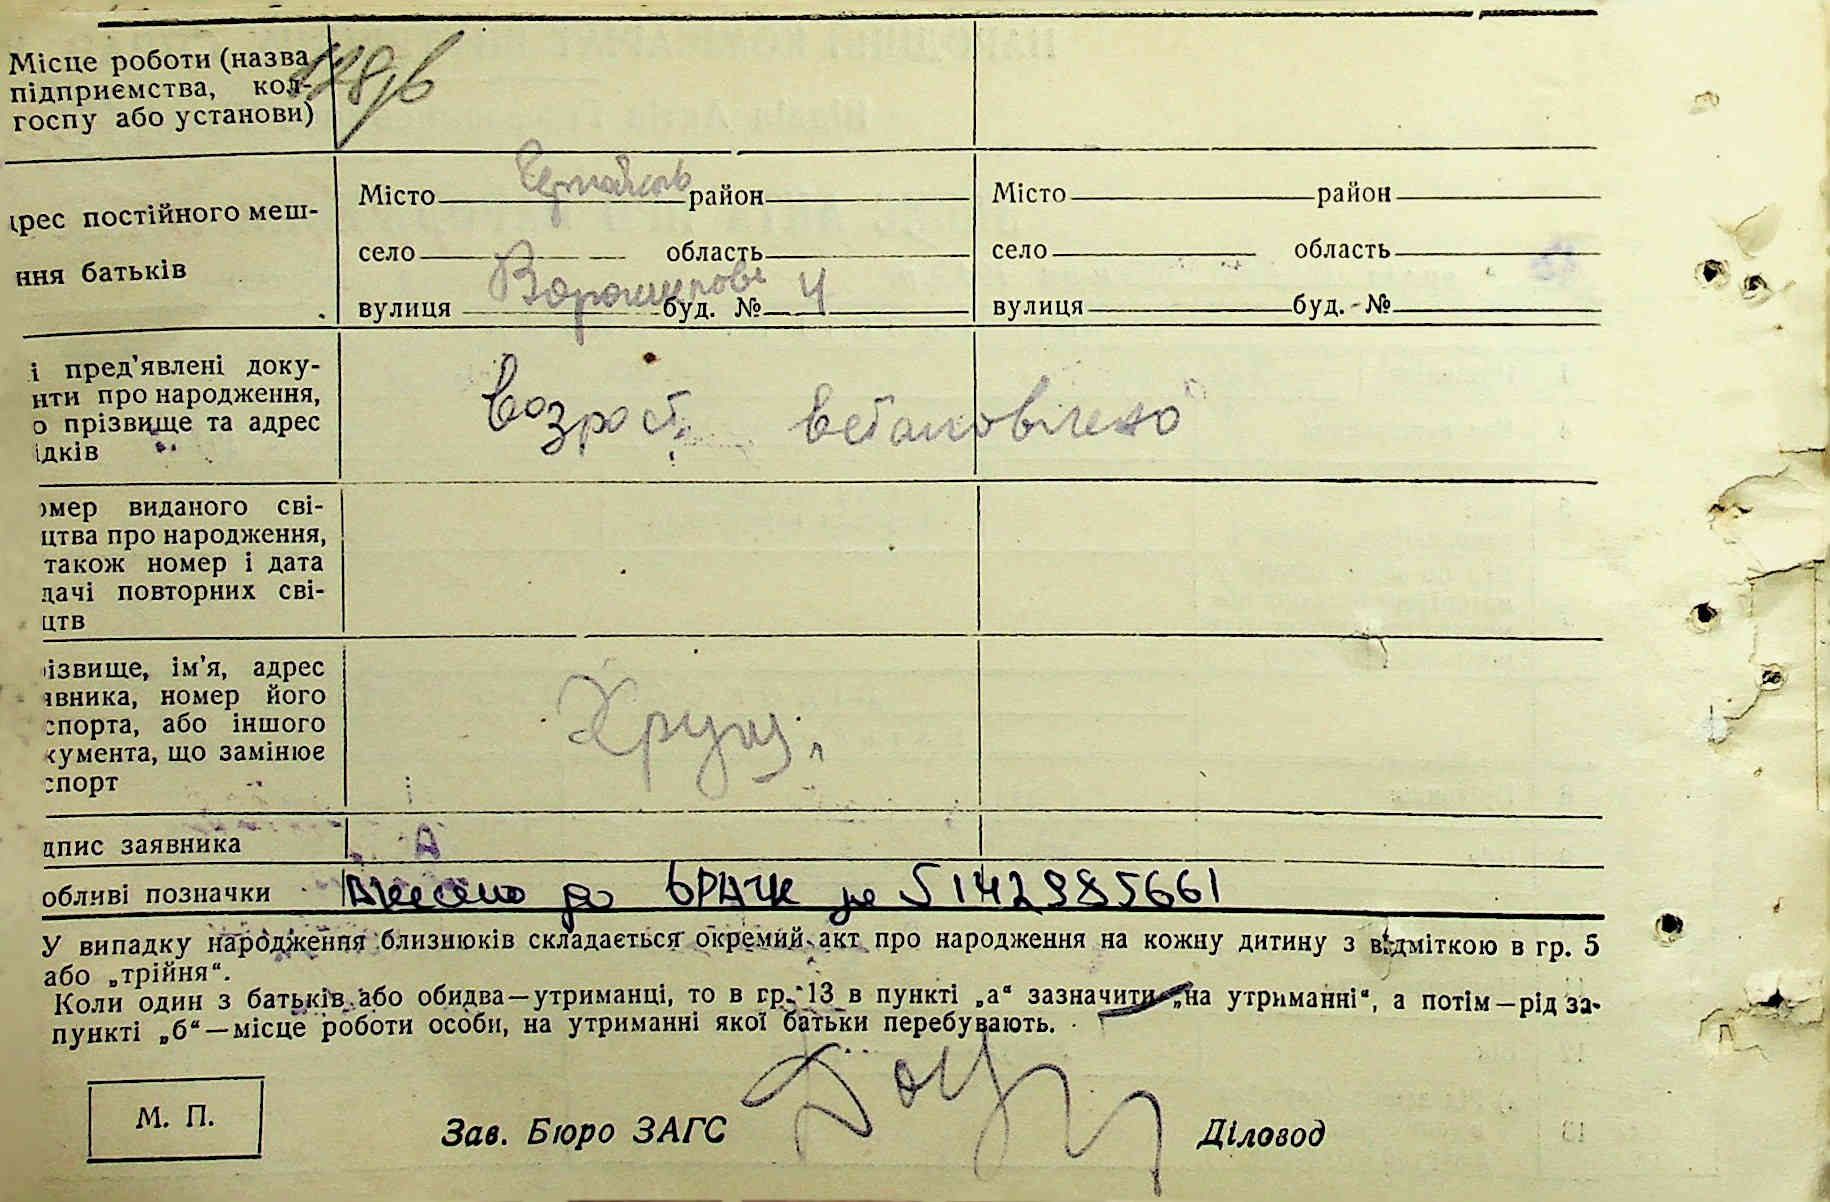 Місце роботи (назва
підприємства, кол-
госпу або установи)
рес постійного меш-
ння батьків
Місто район
село область
вулиця Ворошилова буд. № 4
Місто район
село область
вулиця буд. №
і пред’явлені доку-
нти про народження,
о прізвище та адрес
ідків
возраст встановлено
омер виданого сві-
цтва про народження,
також номер і дата
дачі повторних сві-
цтв
ізвище, ім’я, адрес
явника, номер його
спорта, або іншого
кумента, що замінює
спорт
дпис заявника
обливі позначки Внесено до ДРАЦС за 5142985661
У випадку народження близнюків складається окремий акт про народження на кожну дитину з відміткою в гр. 5
або „трійня“.
Коли один з батьків або обидва—утриманці, то в гр. 13 в пункті „а“ зазначити „на утриманні“, а потім—рід за-
пункті „б“—місце роботи особи, на утриманні якої батьки перебувають.
М. П.
Зав. Бюро ЗАГС
Діловод